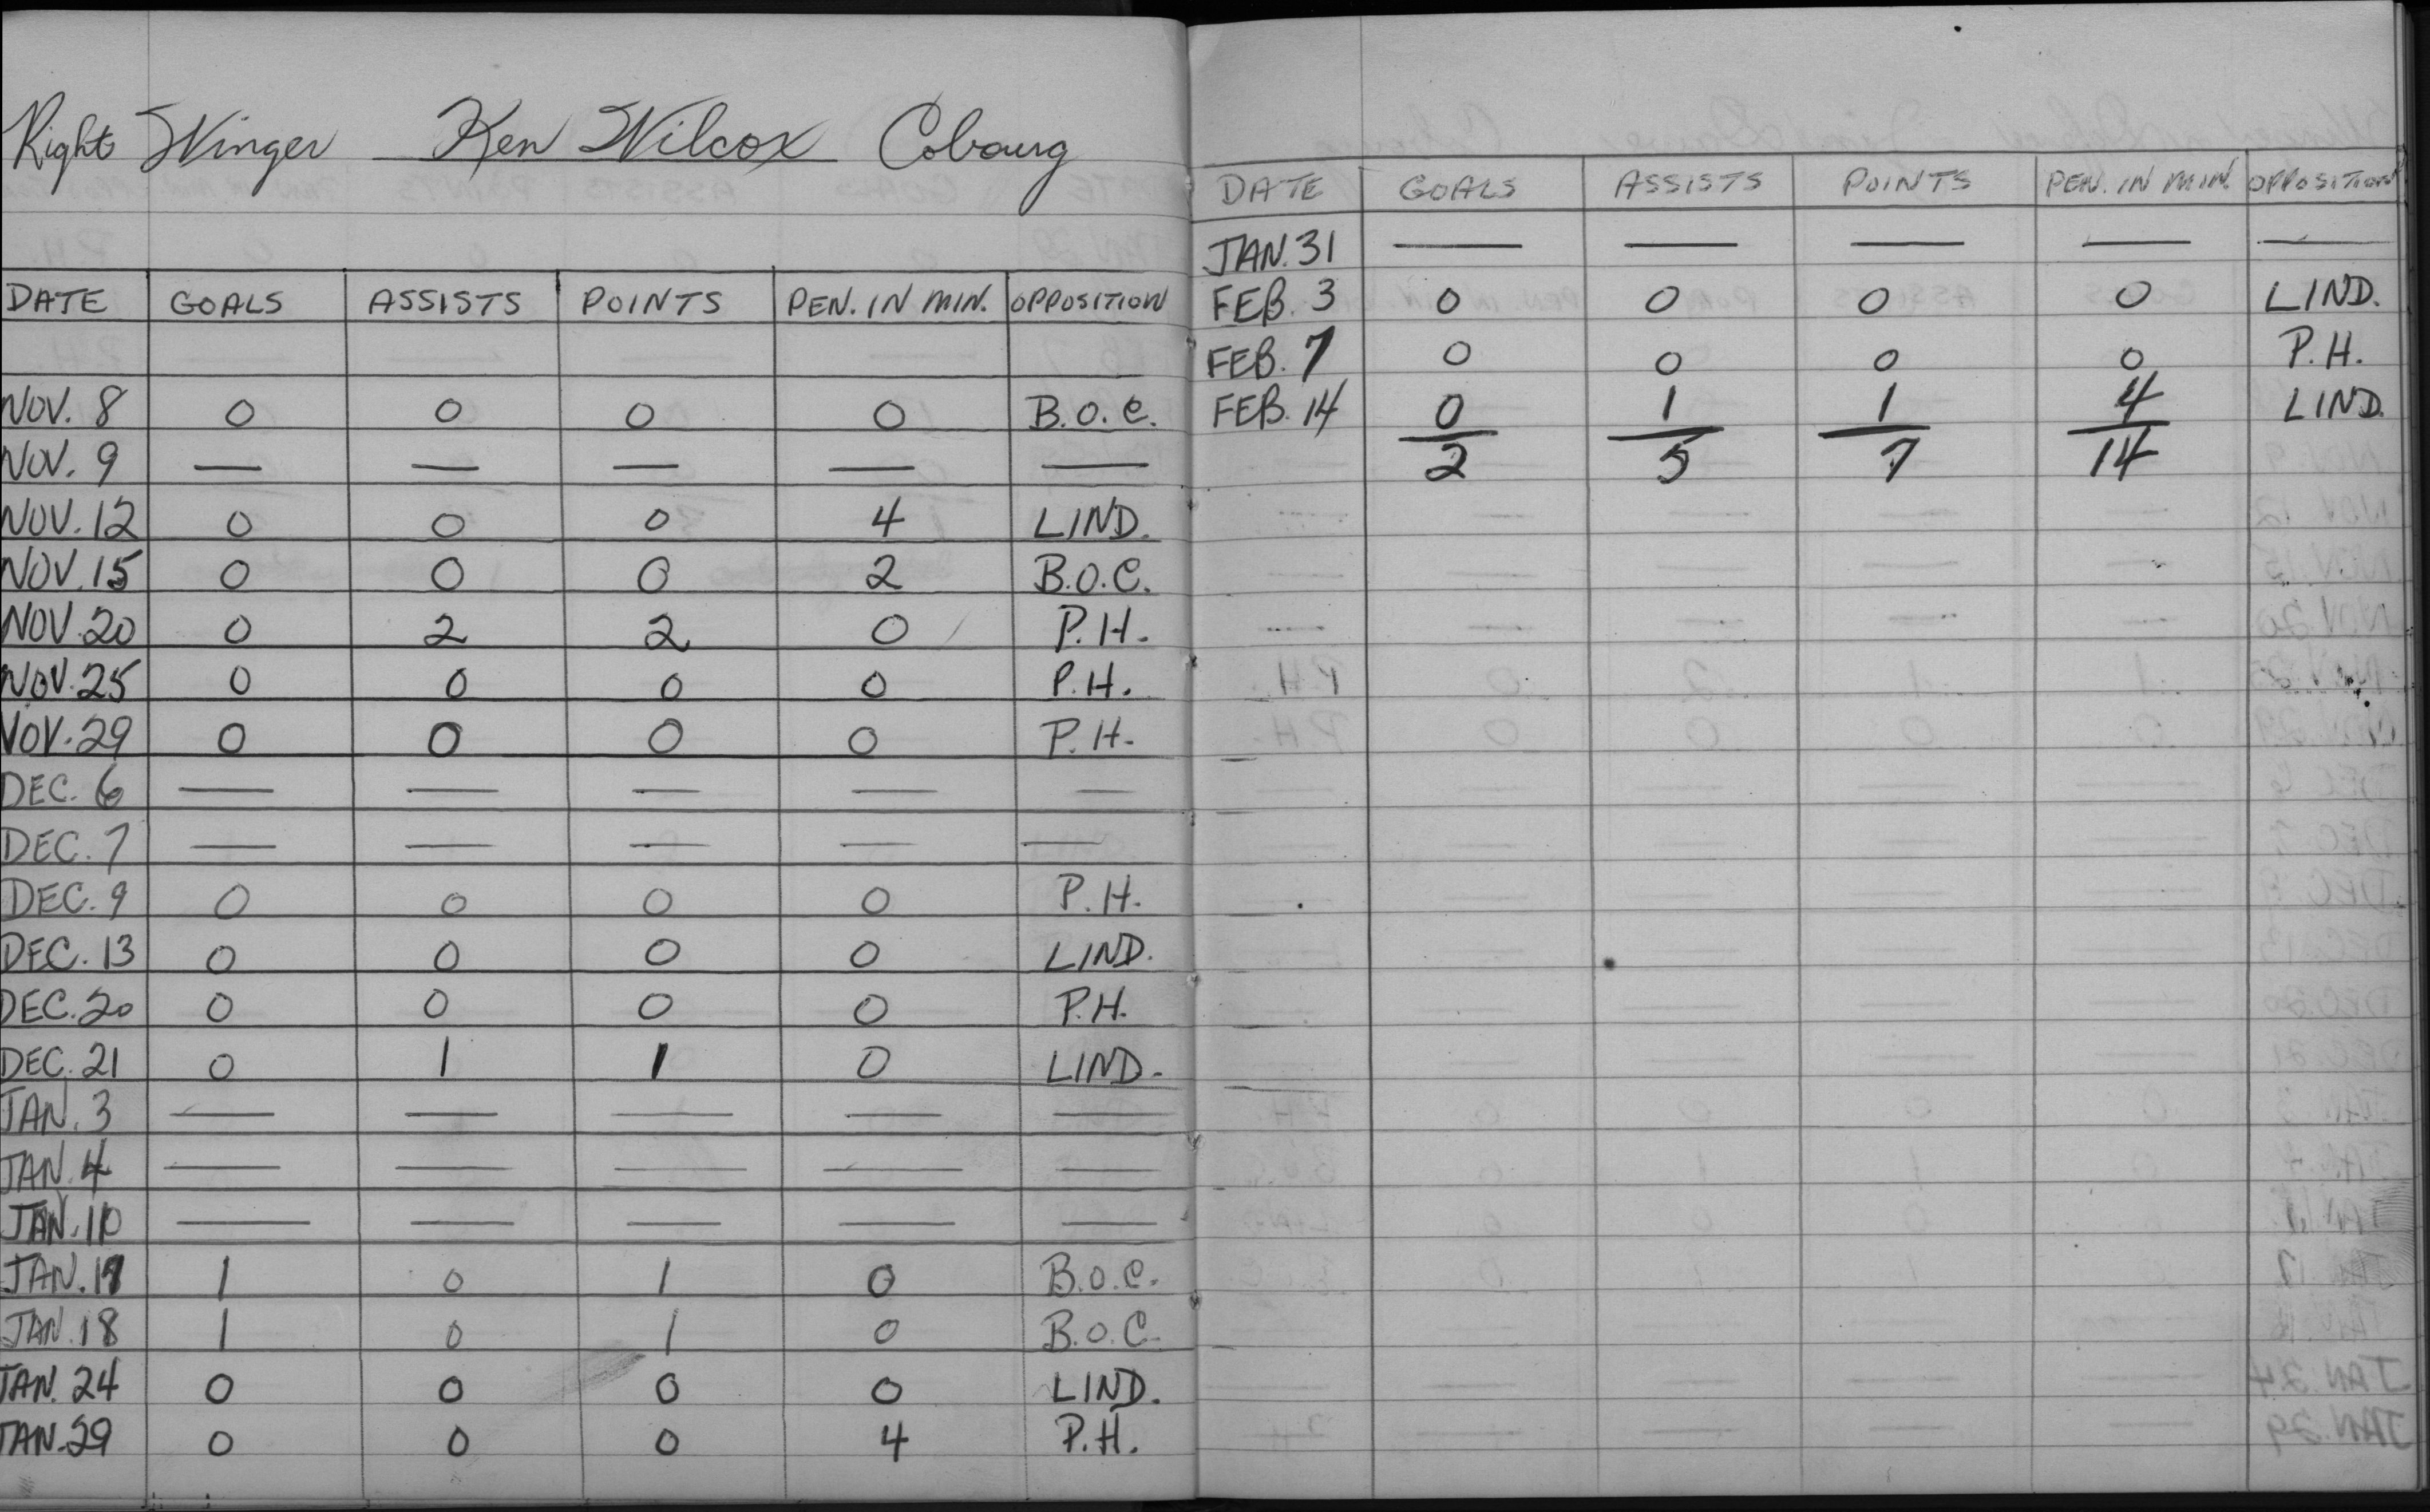 Right Winger Ken Wilcox Cobourg
DATE GOALS ASSISTS POINTS PEN. IN MIN. OPPOSITION
NOV. 8 0 0 0 0 B.O.C.
NOV. 9 — — — — —
NOV. 12 0 0 0 4 LIND.
NOV. 15 0 0 0 2 B.O.C.
NOV. 20 0 2 2 0 P.H.
NOV. 25 0 0 0 0 P.H.
NOV. 29 0 0 0 0 P.H.
DEC. 6 — — — — —
DEC. 7 — — — — —
DEC. 9 0 0 0 0 P.H.
DEC. 13 0 0 0 0 LIND.
DEC. 20 0 0 0 0 P.H.
DEC. 21 0 1 1 0 LIND.
JAN. 3 — — — — —
JAN. 4 — — — — —
JAN. 10 — — — — —
JAN. 17 1 0 1 0 B.O.C.
JAN. 18 1 0 1 0 B.O.C.
JAN. 24 0 0 0 0 LIND.
JAN. 29 0 0 0 4 P.H.
DATE GOALS ASSISTS POINTS PEN. IN MIN. OPPOSITION
JAN. 31 — — — — —
FEB. 3 0 0 0 0 LIND.
FEB. 7 0 0 0 0 P.H.
FEB. 14 0 1 1 4 LIND.
2 5 7 14